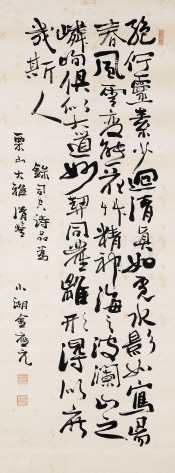 絕佇靈素少迴清真如覓水影如寫陽
春風雲變態花艸精神海之波瀾山之
嶙峋俱似大道妙契同塵離形得似庶
幾斯人
錄司空詩品為
栗山大雅清鑒
小湖金應元